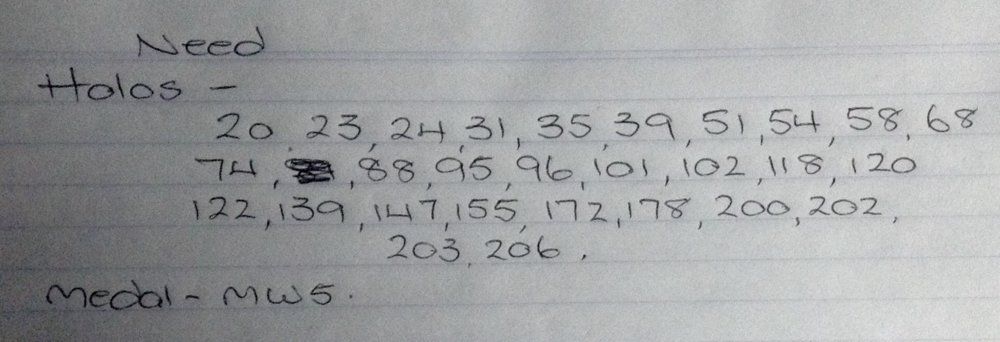 Need
Holos -
20, 23, 24, 31, 35, 39, 51, 54, 58, 68
74, , 88, 95, 96, 101, 102, 118, 120
122, 139, 147, 155, 172, 178, 200, 202,
203, 206.
Medal - MW5.